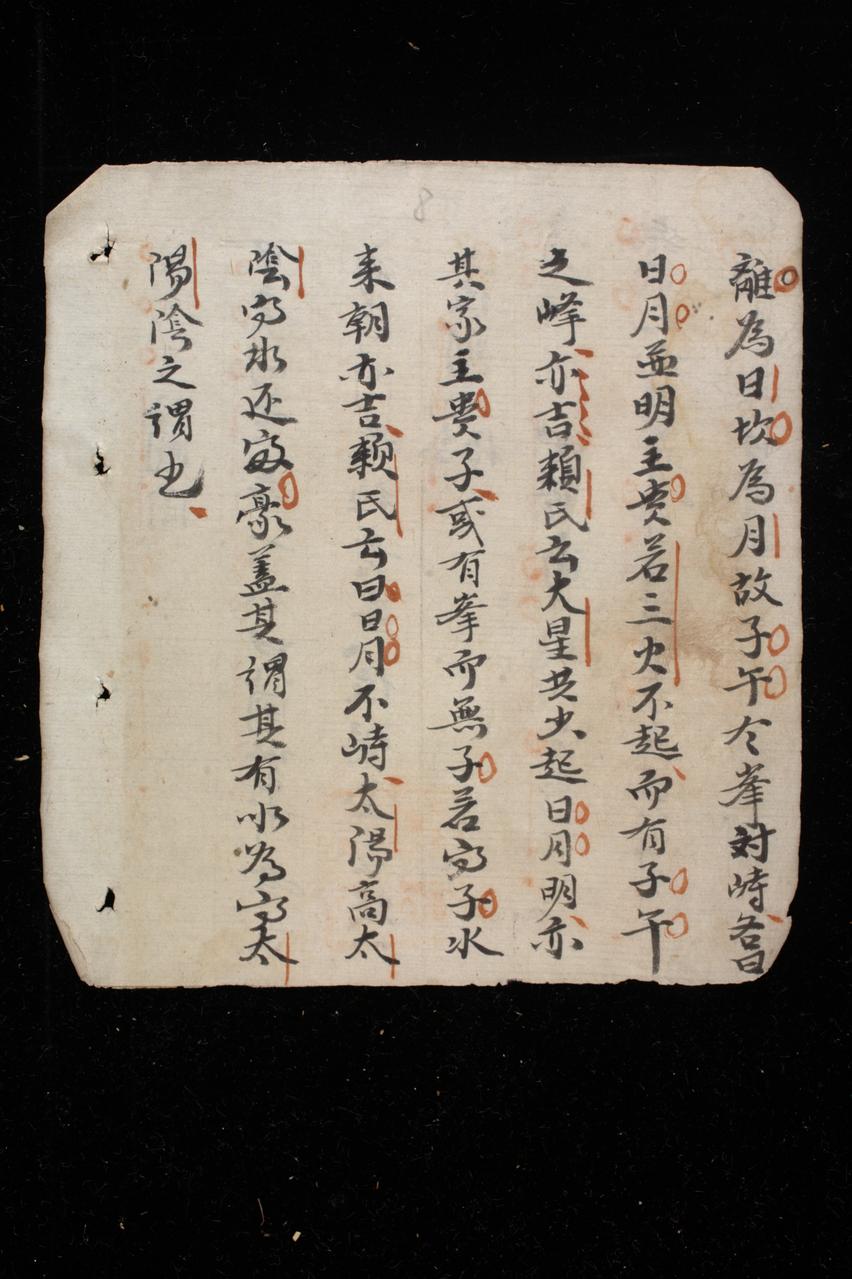 8
離為日坎為月故子午仝峯対峙名曰
日月並明主贵若三火不起而有子午
之峰亦吉頼氏云大星共火起日月明亦
其家主贵子或有峯而無子若子水
来朝亦吉頼氏云曰日月不峙太陽高太
陰水还豪盖其謂其有水為太
陽陰之謂也